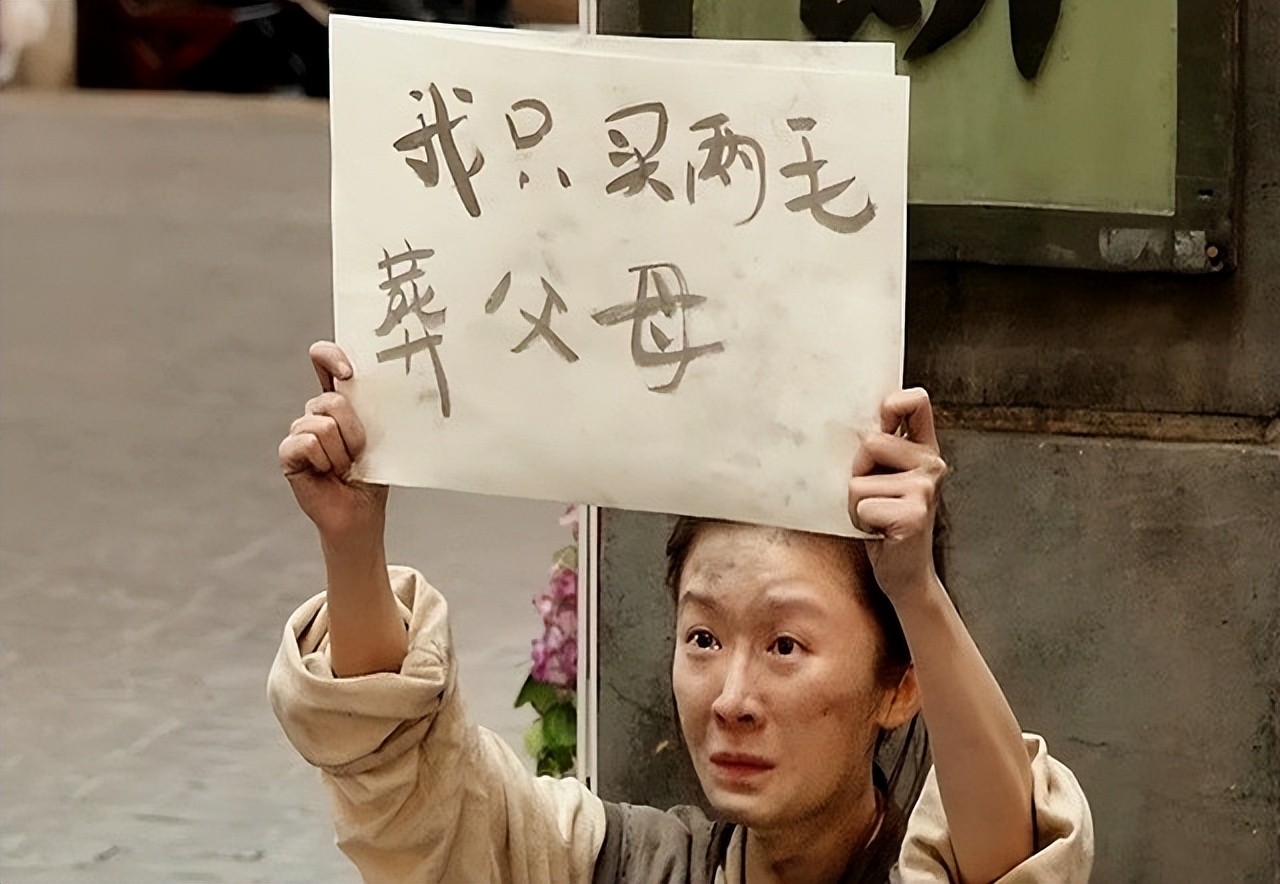 我只买两毛
葬父母